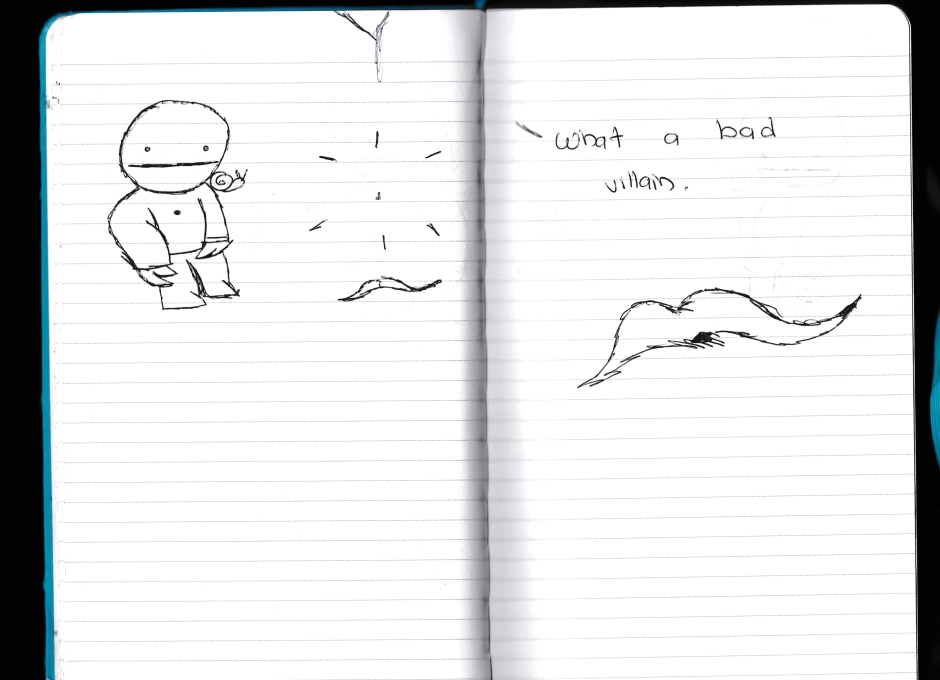 What a bad
villain.